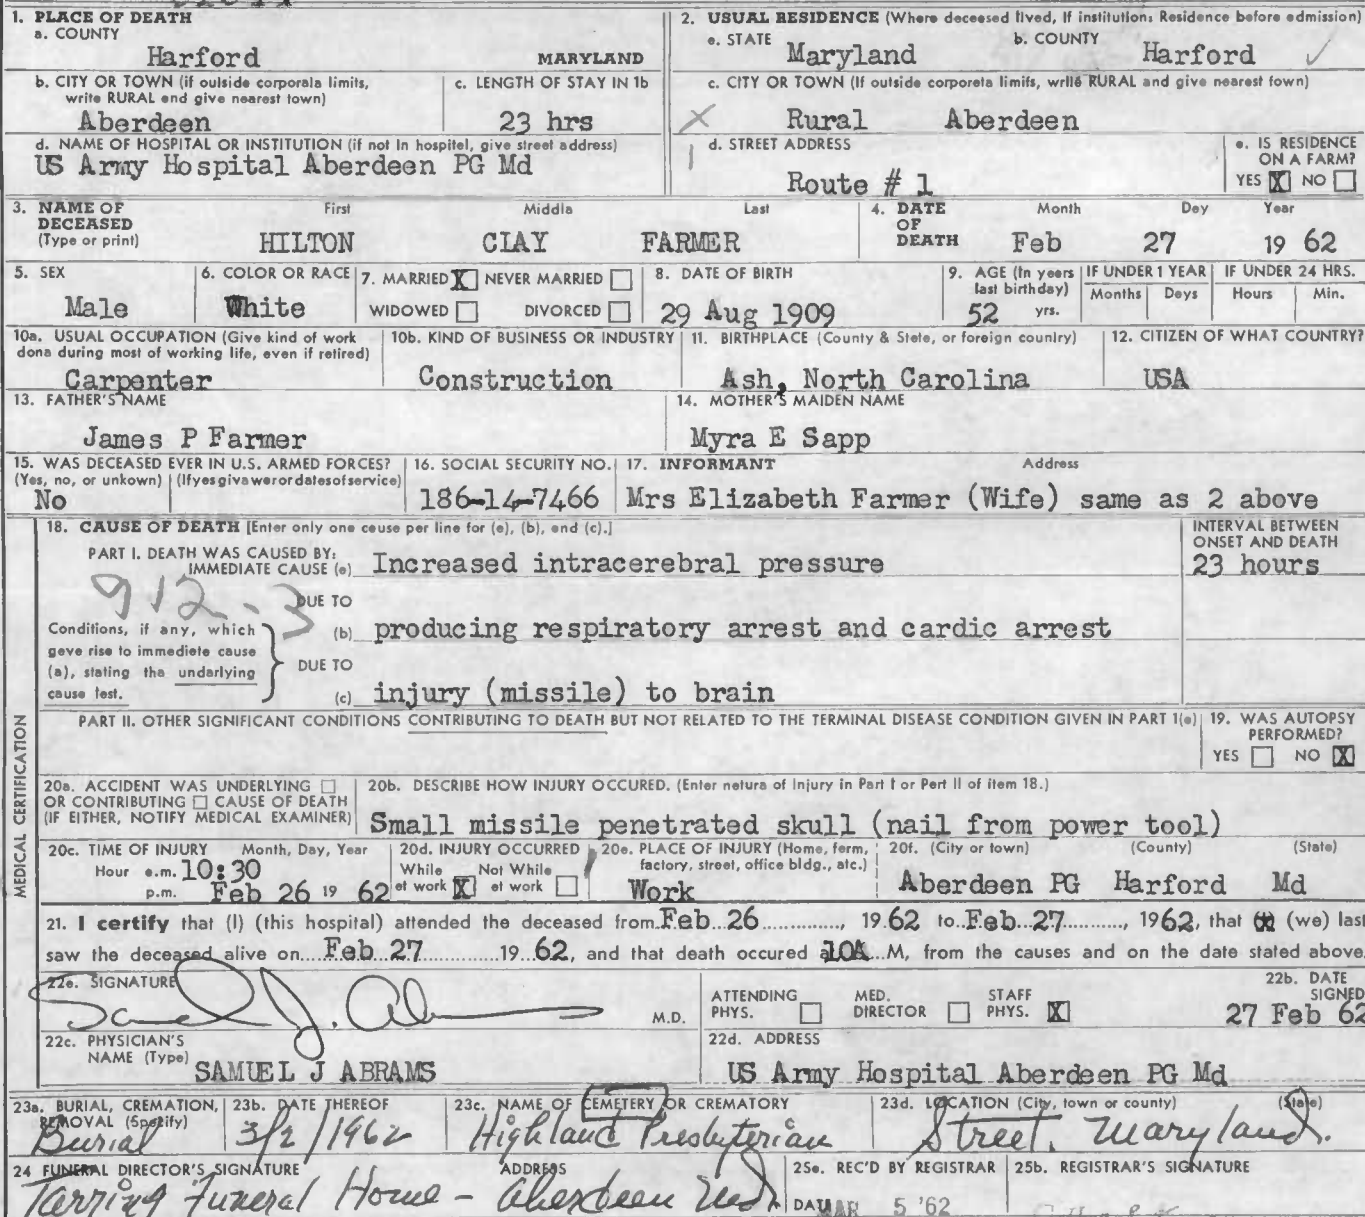 1. PLACE OF DEATH
a. COUNTY
Harford MARYLAND
2. USUAL RESIDENCE (Where deceased lived, If institution: Residence before admission)
a. STATE Maryland b. COUNTY Harford
b. CITY OR TOWN (if outside corporate limits, write RURAL and give nearest town)
Aberdeen
c. LENGTH OF STAY IN 1b
23 hrs
c. CITY OR TOWN (If outside corporate limits, write RURAL and give nearest town)
Rural Aberdeen
d. NAME OF HOSPITAL OR INSTITUTION (if not In hospital, give street address)
US Army Hospital Aberdeen PG Md
d. STREET ADDRESS
Route # 1
e. IS RESIDENCE ON A FARM?
YES X NO
3. NAME OF DECEASED (Type or print)
First Middle Last
HILTON CLAY FARMER
4. DATE OF DEATH
Month Day Year
Feb 27 19 62
5. SEX
Male
6. COLOR OR RACE
White
7. MARRIED X NEVER MARRIED
WIDOWED DIVORCED
8. DATE OF BIRTH
29 Aug 1909
9. AGE (In years last birthday)
52 yrs.
IF UNDER 1 YEAR
Months Days
IF UNDER 24 HRS.
Hours Min.
10a. USUAL OCCUPATION (Give kind of work done during most of working life, even if retired)
Carpenter
10b. KIND OF BUSINESS OR INDUSTRY
Construction
11. BIRTHPLACE (County & State, or foreign country)
Ash, North Carolina
12. CITIZEN OF WHAT COUNTRY?
USA
13. FATHER'S NAME
James P Farmer
14. MOTHER'S MAIDEN NAME
Myra E Sapp
15. WAS DECEASED EVER IN U.S. ARMED FORCES?
(Yes, no, or unkown) (If yes give war or dates of service)
No
16. SOCIAL SECURITY NO.
186-14-7466
17. INFORMANT Address
Mrs Elizabeth Farmer (Wife) same as 2 above
MEDICAL CERTIFICATION
18. CAUSE OF DEATH [Enter only one cause per line for (a), (b), and (c).]
INTERVAL BETWEEN ONSET AND DEATH
PART I. DEATH WAS CAUSED BY:
IMMEDIATE CAUSE (a) Increased intracerebral pressure 23 hours
912-3
DUE TO
(b) producing respiratory arrest and cardic arrest
Conditions, if any, which gave rise to immediate cause (a), stating the underlying cause last.
DUE TO
(c) injury (missile) to brain
PART II. OTHER SIGNIFICANT CONDITIONS CONTRIBUTING TO DEATH BUT NOT RELATED TO THE TERMINAL DISEASE CONDITION GIVEN IN PART 1(a)
19. WAS AUTOPSY PERFORMED?
YES NO X
20a. ACCIDENT WAS UNDERLYING
OR CONTRIBUTING CAUSE OF DEATH
(IF EITHER, NOTIFY MEDICAL EXAMINER)
20b. DESCRIBE HOW INJURY OCCURED. (Enter nature of Injury in Part I or Part II of item 18.)
Small missile penetrated skull (nail from power tool)
20c. TIME OF INJURY Month, Day, Year
Hour a.m. 10:30
p.m. Feb 26 19 62
20d. INJURY OCCURRED
While at work X Not While at work
20e. PLACE OF INJURY (Home, farm, factory, street, office bldg., etc.)
Work
20f. (City or town) (County) (State)
Aberdeen PG Harford Md
21. I certify that (I) (this hospital) attended the deceased from Feb 26, 1962 to Feb 27, 1962, that (we) last
saw the deceased alive on Feb 27 19 62, and that death occured 10A M, from the causes and on the date stated above.
22a. SIGNATURE
M.D.
ATTENDING PHYS. MED. DIRECTOR STAFF PHYS. X
22b. DATE SIGNED
27 Feb 62
22c. PHYSICIAN'S NAME (Type)
SAMUEL J ABRAMS
22d. ADDRESS
US Army Hospital Aberdeen PG Md
23a. BURIAL, CREMATION, REMOVAL (Specify)
Burial
23b. DATE THEREOF
3/2/1962
23c. NAME OF CEMETERY OR CREMATORY
Highland Presbyterian
23d. LOCATION (City, town or county) (State)
Street, Maryland.
24 FUNERAL DIRECTOR'S SIGNATURE ADDRESS
Tarring Funeral Home - Aberdeen Md.
25a. REC'D BY REGISTRAR
DATE MAR 5 '62
25b. REGISTRAR'S SIGNATURE